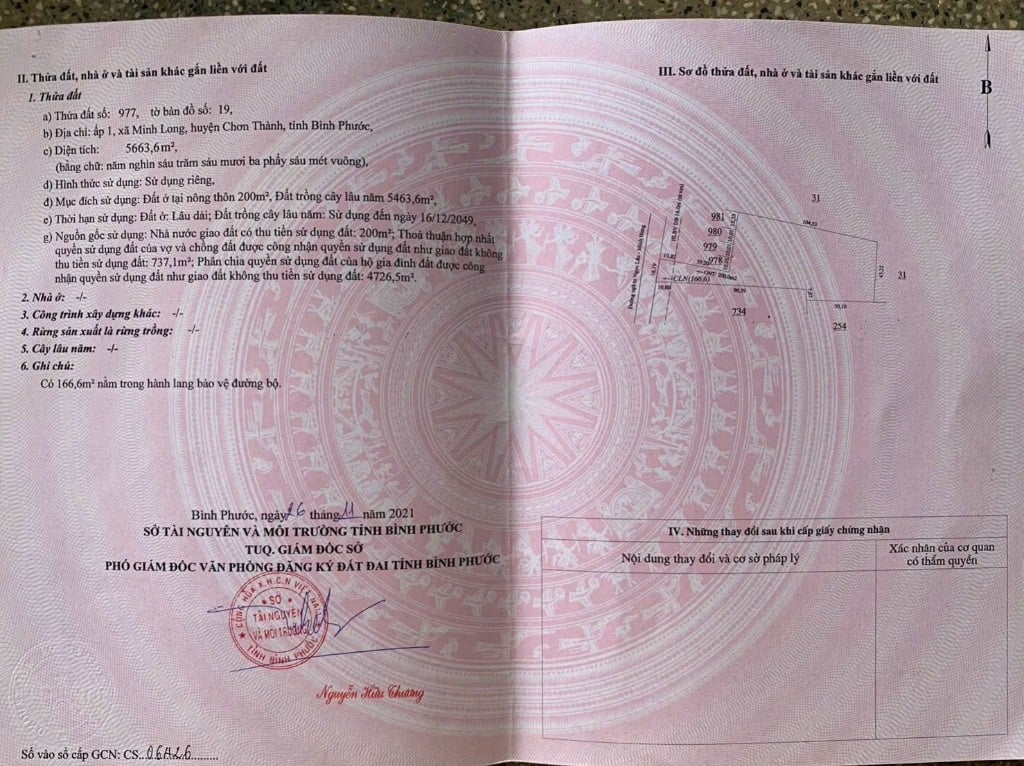 II. Thửa đất, nhà ở và tài sản khác gắn liền với đất
1. Thửa đất
a) Thửa đất số: 977, tờ bản đồ số: 19,
b) Địa chỉ: ấp 1, xã Minh Long, huyện Chơn Thành, tỉnh Bình Phước,
c) Diện tích: 5663,6m²,
(bằng chữ: năm nghìn sáu trăm sáu mươi ba phẩy sáu mét vuông),
d) Hình thức sử dụng: Sử dụng riêng,
đ) Mục đích sử dụng: Đất ở tại nông thôn 200m², Đất trồng cây lâu năm 5463,6m²,
e) Thời hạn sử dụng: Đất ở: Lâu dài; Đất trồng cây lâu năm: Sử dụng đến ngày 16/12/2049,
g) Nguồn gốc sử dụng: Nhà nước giao đất có thu tiền sử dụng đất: 200m²; Thoả thuận hợp nhất
quyền sử dụng đất của vợ và chồng đất được công nhận quyền sử dụng đất như giao đất không
thu tiền sử dụng đất: 737,1m²; Phân chia quyền sử dụng đất của hộ gia đình đất được công
nhận quyền sử dụng đất như giao đất không thu tiền sử dụng đất: 4726,5m².
2. Nhà ở: -/-
3. Công trình xây dựng khác: -/-
4. Rừng sản xuất là rừng trồng: -/-
5. Cây lâu năm: -/-
6. Ghi chú:
Có 166,6m² nằm trong hành lang bảo vệ đường bộ.
Bình Phước, ngày 26 tháng 11 năm 2021
SỞ TÀI NGUYÊN VÀ MÔI TRƯỜNG TỈNH BÌNH PHƯỚC
TUQ. GIÁM ĐỐC SỞ
PHÓ GIÁM ĐỐC VĂN PHÒNG ĐĂNG KÝ ĐẤT ĐAI TỈNH BÌNH PHƯỚC
CỘNG HÒA X.H.C.N VIỆT NAM
SỞ
TÀI NGUYÊN
VÀ MÔI TRƯỜNG
TỈNH BÌNH PHƯỚC
Nguyễn Hữu Chương
Số vào sổ cấp GCN: CS
III. Sơ đồ thửa đất, nhà ở và tài sản khác gắn liền với đất
B
31
981
104,53
980
979
978
31
16,19
CLN(166,6)
10,80
50,19
734
254
IV. Những thay đổi sau khi cấp giấy chứng nhận
Nội dung thay đổi và cơ sở pháp lý
Xác nhận của cơ quan
có thẩm quyền